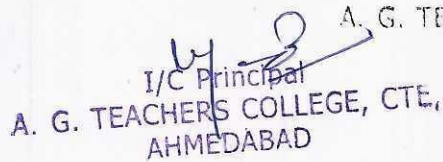 A. G. TE
I/C Principal
A. G. TEACHERS COLLEGE, CTE,
AHMEDABAD